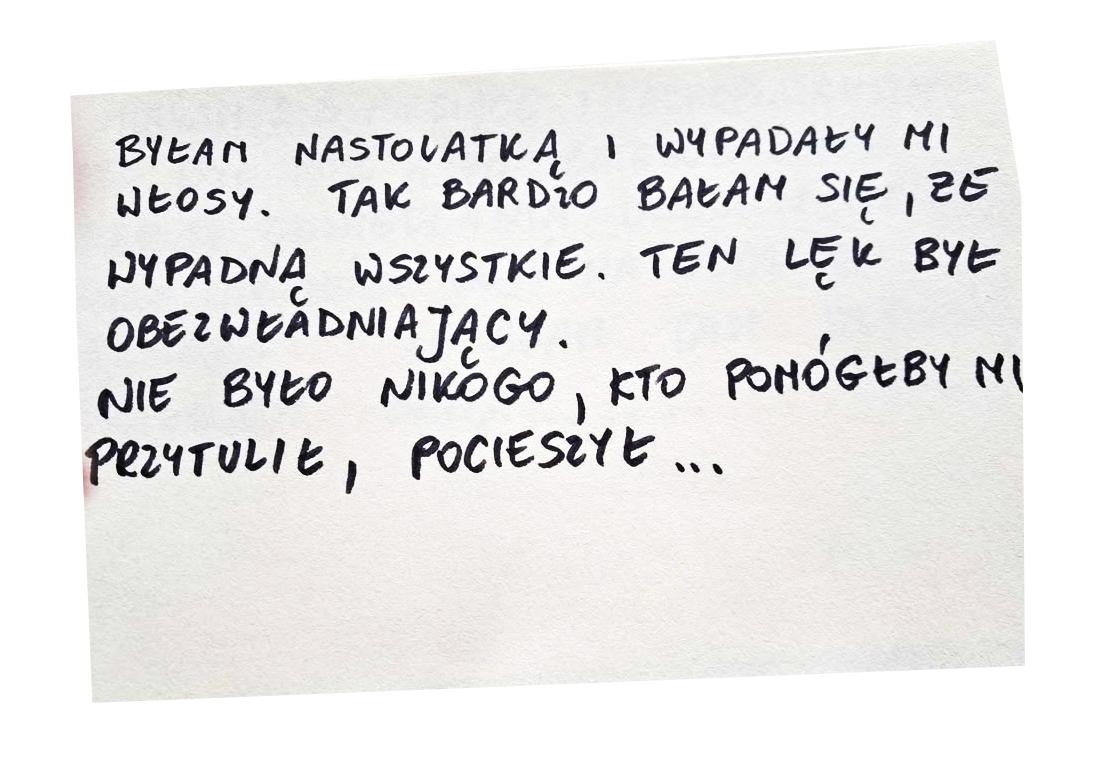 BYŁAM NASTOLATKĄ I WYPADAŁY MI
WŁOSY. TAK BARDZO BAŁAM SIĘ, ZE
WYPADNĄ WSZYSTKIE. TEN LĘK BYŁ
OBEZWŁADNIAJĄCY.
NIE BYŁO NIKOGO, KTO POMÓGŁBY MI
PRZYTULIŁ, POCIESZYŁ...